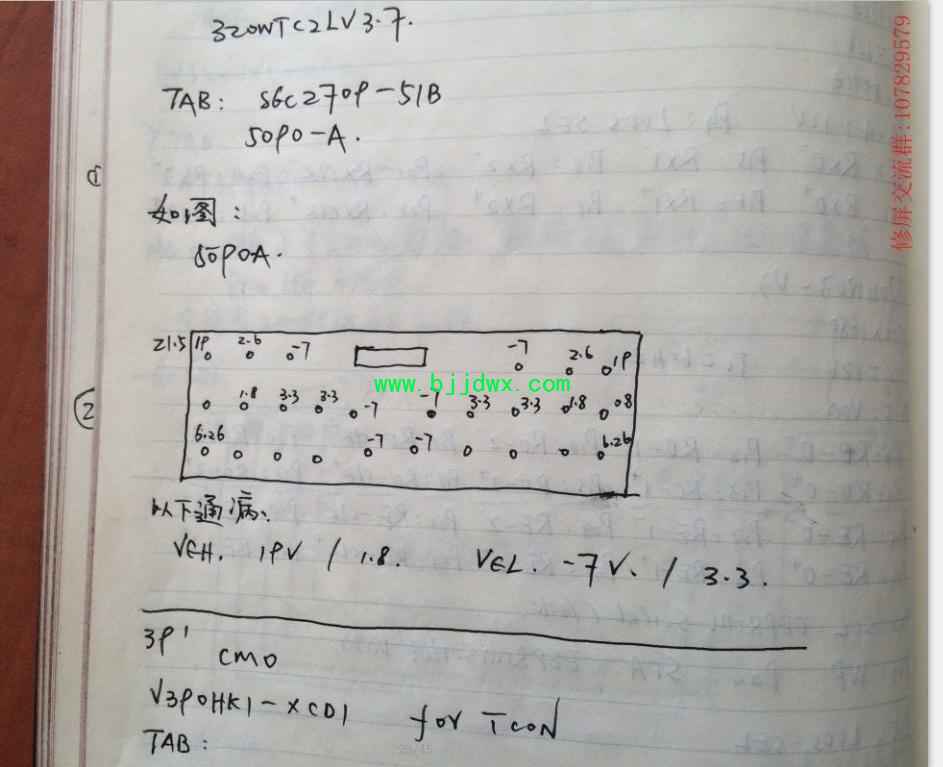 320WTC2LV3.7.
TAB: S6C270P-51B
50P0-A.
①
如图:
50P0A.
21.5 19 2.6 -7 -7 2.6 19
www.bjjdwx.com
1.8 3.3 3.3 -7 -7 3.3 3.3 1.8 08
②
6.26 -7 -7 6.26
以下通病:
VGH. 19V / 1.8. VGL. -7V. / 3.3.
39'
CMO
V390HK1-XCD1 for TCON
TAB:
修屏交流群:107829579